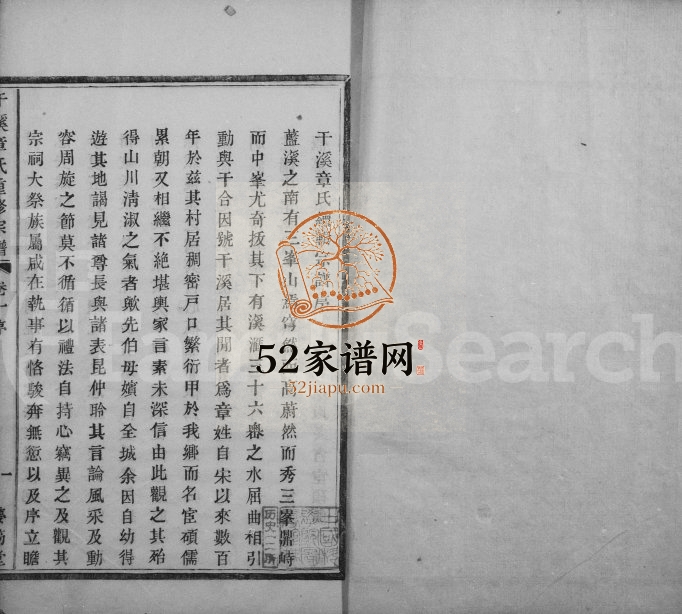 干溪章氏
藍溪之南有三峯山
高蔚然而秀三峯鼎峙
而中峯尤奇拔其下有溪
三十六嶴之水屈曲相引
動與干合因號干溪居其間者爲章姓自宋以來數百
年於茲其村居稠密戸口繁衍甲於我鄉而名宦碩儒
累朝又相繼不絕堪輿家言素未深信由此觀之其殆
得山川清淑之氣者歟先伯母嬪自全城余因自幼得
遊其地謁見諸尊長與諸表昆仲聆其言論風采及動
容周旋之節莫不循循以禮法自持心竊異之及觀其
宗祠大祭族屬咸在執事有恪駿奔無愆以及序立瞻
干溪章氏重修宗譜
卷一序
一
52家谱网
52jiapu.com
Search
历史二所